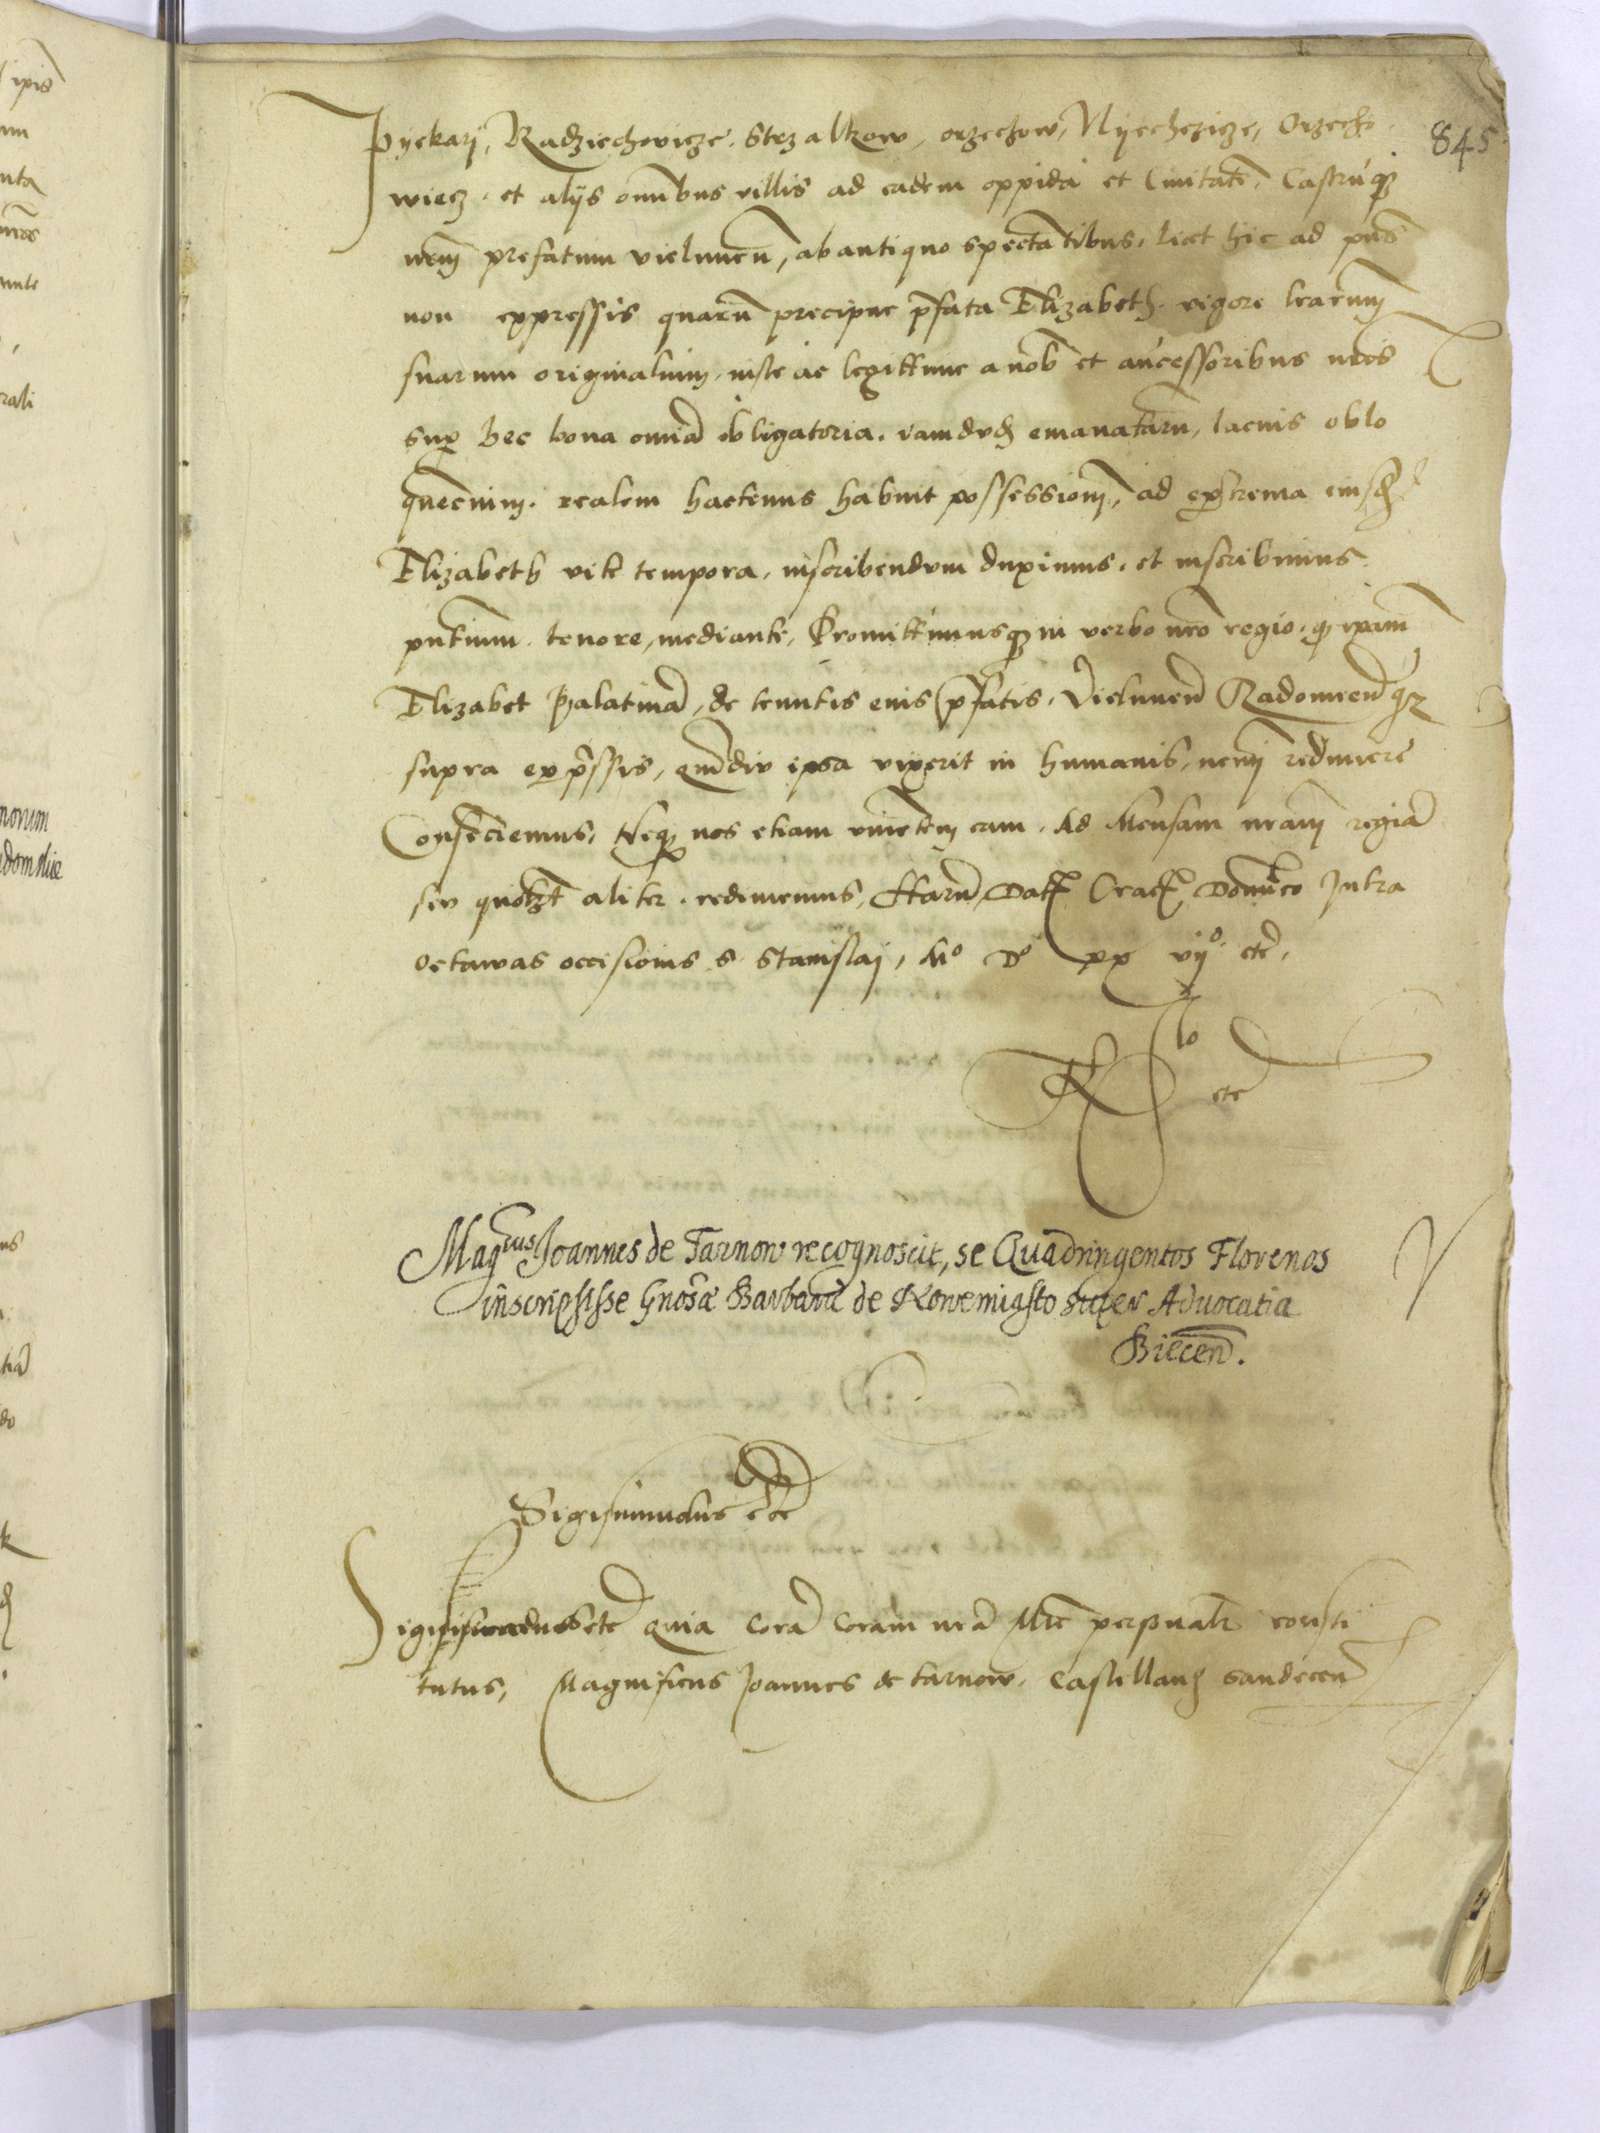 845
Pyekarj, Radziechovicze, Strzalkow, orzechow, Nyechczicze, Orzecho
wiecz. et alijs omibus villis ad eadem oppida et Civitatē, Castrūqz
nr̄m prefatum vielunen̄, ab antiquo spectātibus, licet hic ad pn̄s
non expressis quarū precipue p̄fata Elizabeth. vigore lr̄arum
suarum originalium, iuste ac legittime a nob̄ et an̄cessoribus nr̄is
sup hec bona omīa obligatoria, iamdud emanatarū, lacius oblo
quen̄cium. realem hactenus habuit possessionē, ad extrema eiusd
Elizabeth vite tempora, inscribendum duximus, et inscribimus
pn̄tium. tenore, mediante, Promittimusqz in verbo nr̄o regio. qz ip̄am
Elizabet Palatinā, de tenutis eius p̄fatis, Vielunen̄ Radomien̄ qz
supra exp̄ssis, quādiu ipsa vixerit in humanis, nemī redimere
Consēciemus, Neqz nos etiam viuētem eam, Ad Mensam nr̄am regiā
seu quōlzt aliter. redimemus, Harū Dat Crac Domīco Intra
octawas occisionis s Stanislaj, Mo Do xx vijo etc.
R etc
Magcus Joannes de Tarnow recognoscit, se Quadringentos Florenos
inscripsisse Gnosæ Barbaræ de Nowemiasto super Advocatia
Biecen̄.
Sigismundus etc
Sigismundus etc Quia Corā Coram nr̄a Mte personalr consti
tutus, Magnificus Joannes de tarnow, Castellanꝰ Sandecen̄